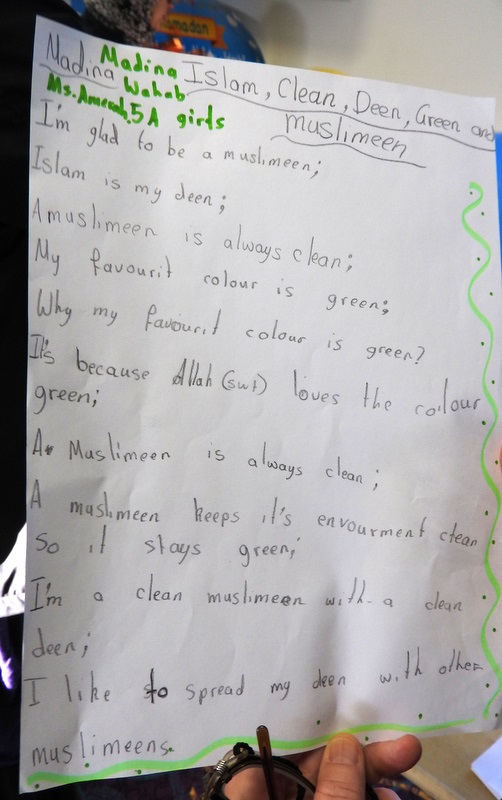 Ramadan
Madina Islam, Clean, Deen, Green and
Muslimeen
Madina
Wahab
Ms. Ameerah, 5A girls
I'm glad to be a muslimeen;
Islam is my deen;
A muslimeen is always clean;
My favourit colour is green;
Why my favourit colour is green?
It's because Allah (swt) loves the colour
green;
A Muslimeen is always clean;
A muslimeen keeps it's envourment clean
so it stays green;
I'm a clean muslimeen with a clean
deen;
I like to spread my deen with other
muslimeens.